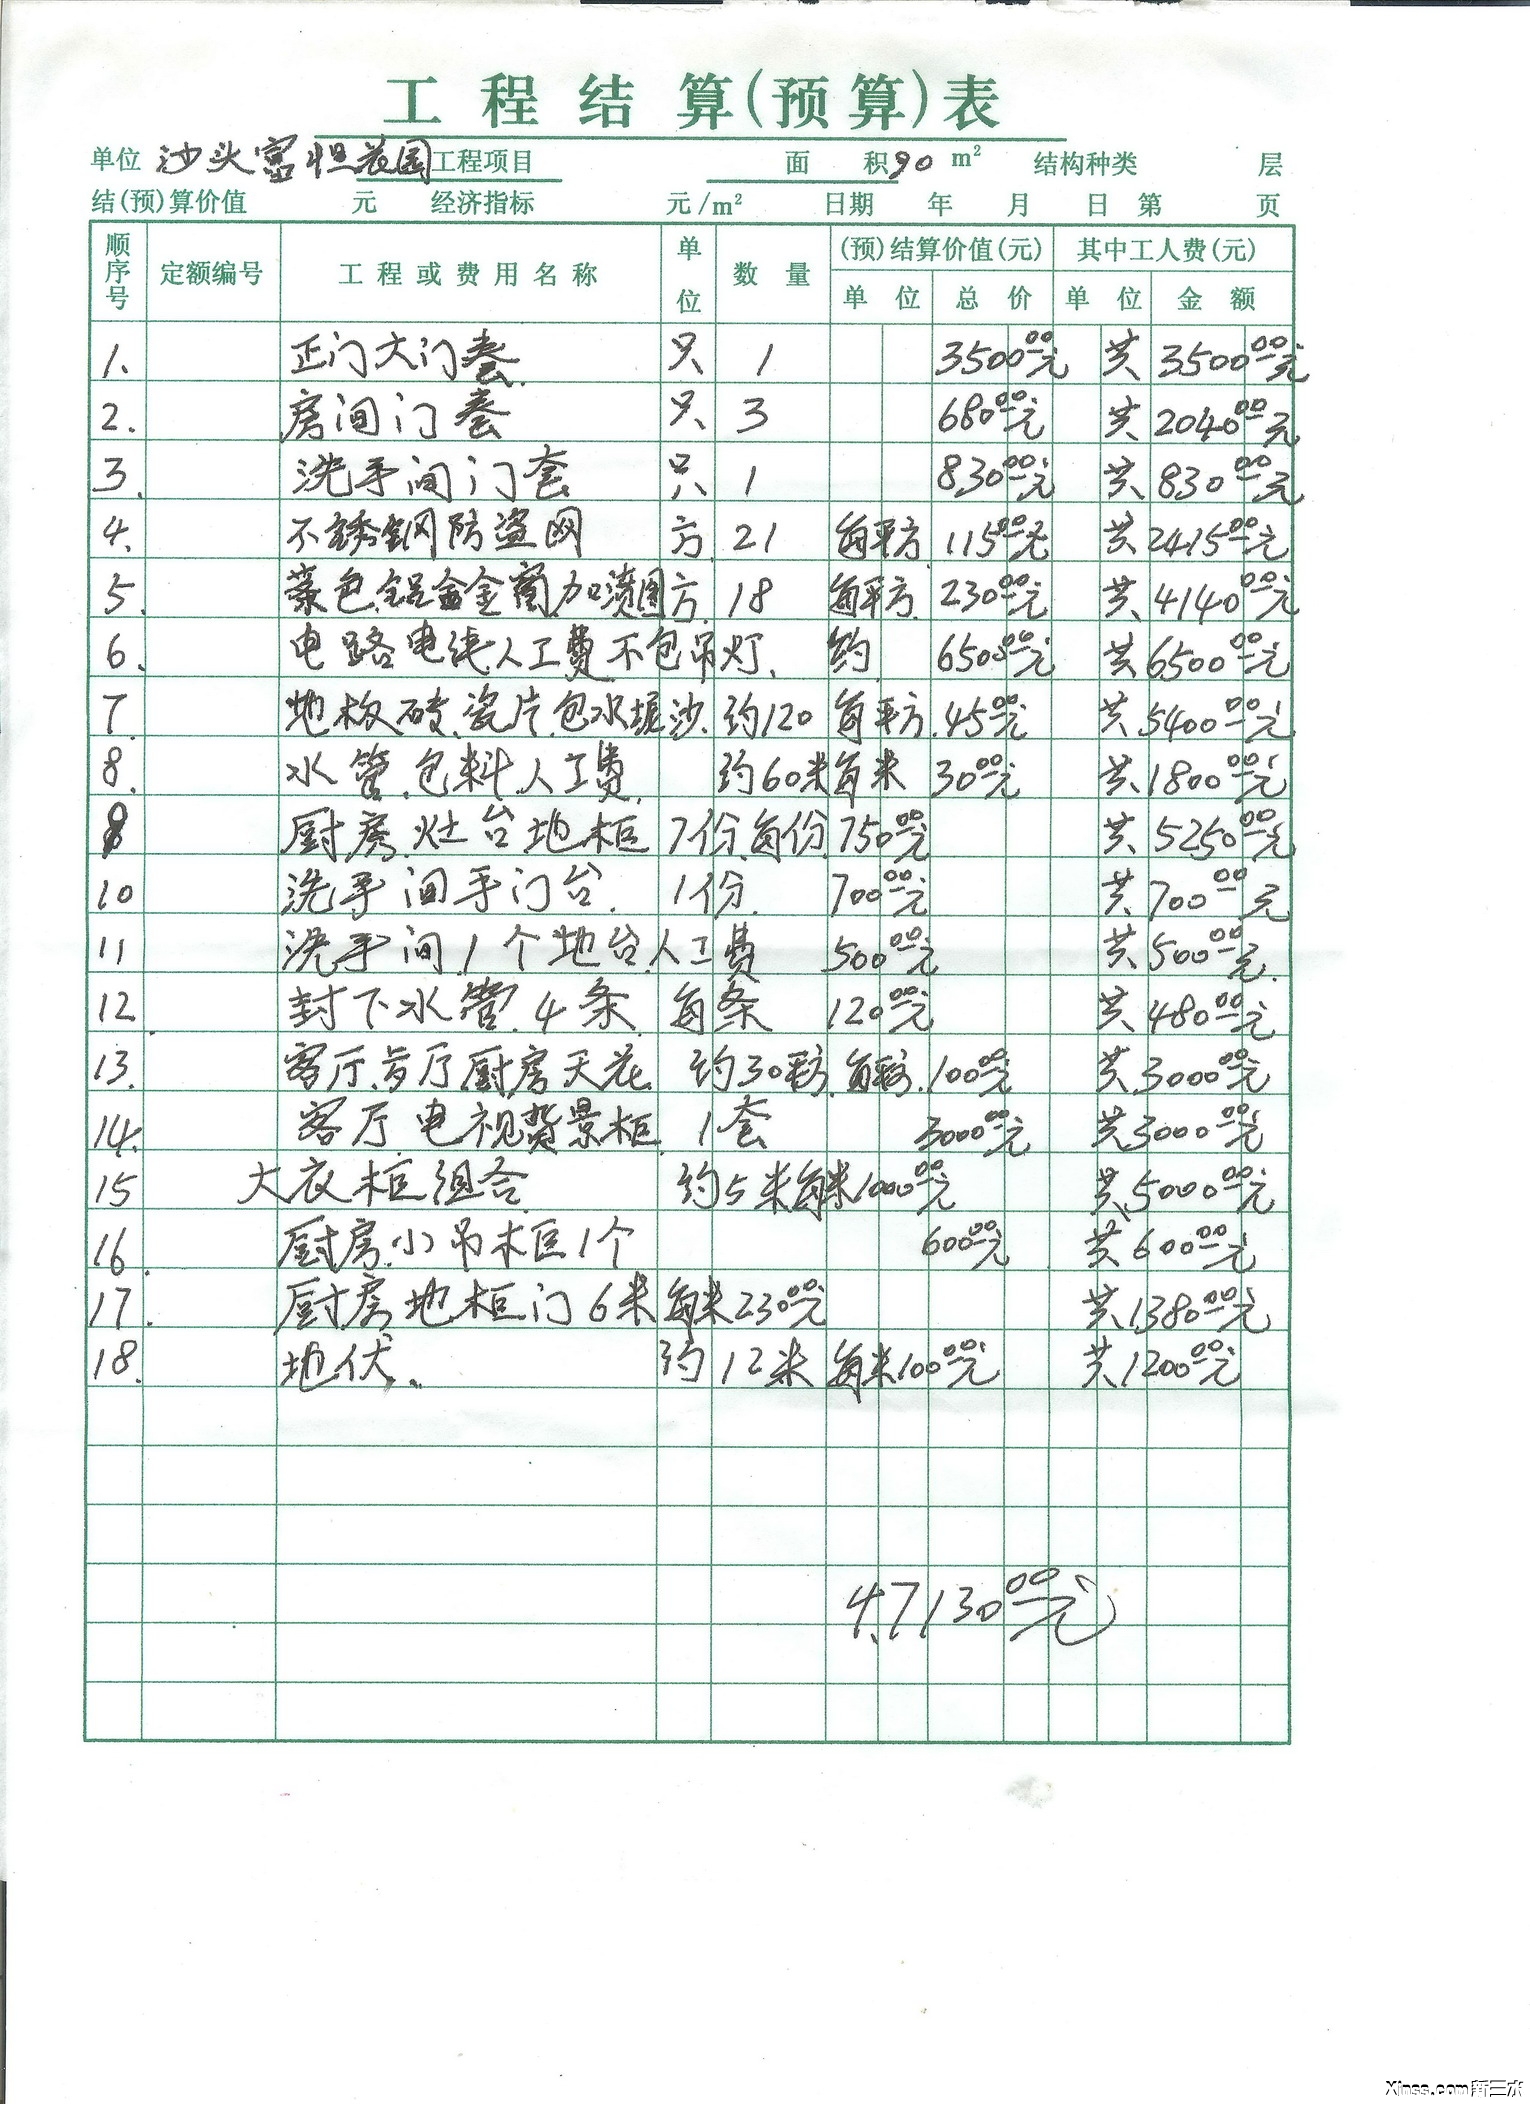 工程结算(预算)表
单位 沙头富恒花园 工程项目 面 积 90 m² 结构种类 层
结(预)算价值 元 经济指标 元/m² 日期 年 月 日 第 页
顺序号 定额编号 工程或费用名称 单位 数量 (预)结算价值(元) 其中工人费(元)
单位 总价 单位 金额
1. 正门大门套 只 1 3500.00元 共 3500.00元
2. 房间门套 只 3 680.00元 共 2040.00元
3. 洗手间门套 只 1 830.00元 共 830.00元
4. 不锈钢防盗网 方 21 每平方 115.00元 共 2415.00元
5. 色铝合金窗加 方 18 每平方 230.00元 共 4140.00元
6. 电路电线人工费不包吊灯. 约 6500.00元 共 6500.00元
7. 地板砖.瓷片.包水 沙. 约120 每平方 45.00元 共 5400.00元
8. 水管.包料人工费 约60米 每米 30.00元 共 1800.00元
9 厨房.灶台地柜 7份.每份 750.00元 共 5250.00元
10 洗手间手门台. 1份. 700.00元 共 700.00元
11 洗手间1个地台.人工费 500.00元 共 500.00元
12. 封下水管.4条 每条 120.00元 共 480.00元
13. 客厅. 厅厨房天花 约30平方 每平方. 100.00元 共 3000.00元
14. 客厅电视背景柜 1套 3000.00元 共 3000.00元
15 大衣柜组合 约5米每米1000.00元 共 5000.00元
16. 厨房.小吊柜1个 600.00元 共 600.00元
17. 厨房地柜门6米 每米230.00元 共 1380.00元
18. 地伏. 约12米 每米100.00元 共 1200.00元
47130.00元
Xinss.com新三水